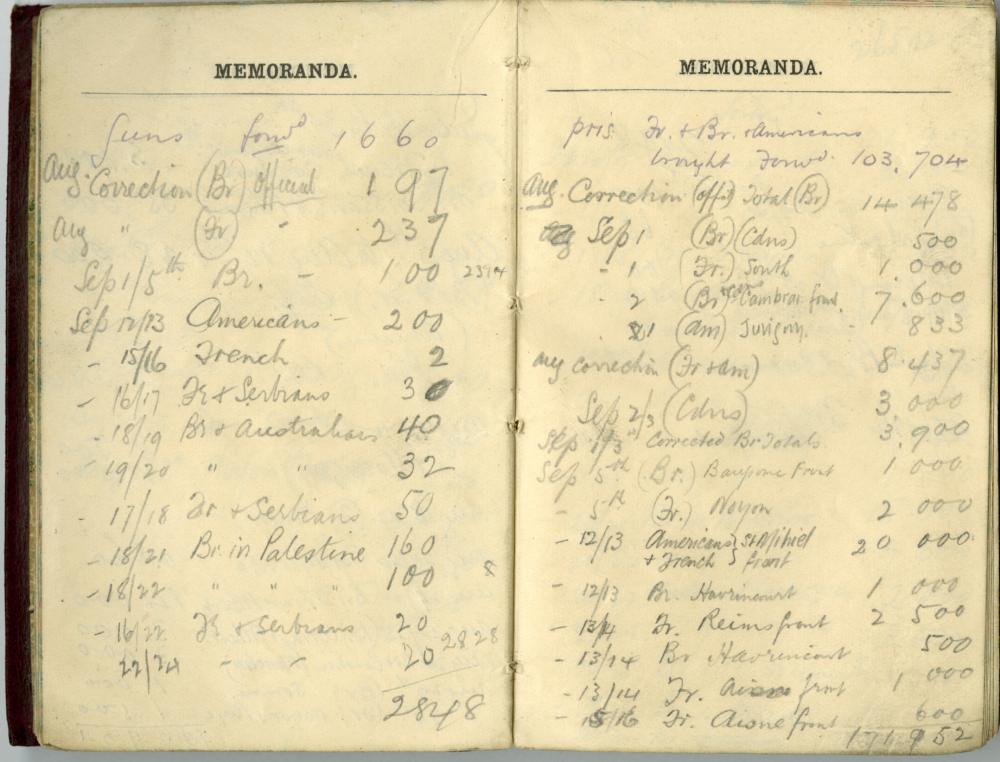 MEMORANDA.
Guns forwd 1660
Aug. Correction (Br) Official 197
Aug " (Fr) - 237
Sep 1/5th Br. - 100 2394
Sep 12/13 Americans - 200
- 15/16 French 2
- 16/17 Fr & Serbians 30
- 18/19 Br & Australians 40
- 19/20 " " 32
- 17/18 Fr & Serbians 50
- 18/21 Br. in Palestine 160
- 18/22 " " " 100
- 16/22 Fr & Serbians 20 2828
22/24 - - 20
2848
MEMORANDA.
pris Fr. & Br. & Americans
brought Forwd. 103.704
Aug. Correction (offl) Total (Br) 14 478
Sep 1 (Br) (Cdns) 500
- 1 (Fr.) South 1.000
- 2 (Br) Cambrai front. 7.600
1 (Am) Juvigny. - 833
Aug correction (Fr & Am) 8.437
Sep 2/3 (Cdns) 3.000
Sep 1/3rd Corrected Br Totals 3.900
Sep 5th (Br.) Bapaume Front 1 000
- 5th (Fr.) Noyon 2 000
- 12/13 Americans & French } St Mihiel front 20 000
- 12/13 Br. Havrincourt 1 000
- 13/4 Fr. Reims front 2 500
- 13/14 Br Havrincourt 500
- 13/14 Fr. Aisne front 1 000
- 15/16 Fr. Aisne front 600
171952